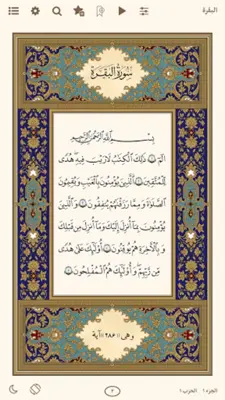 البقرة
سورة البقرة
بسم الله الرحمن الرحيم
الم ۝١ ذلك الكتب لا ريب فيه هدى
للمتقين ۝٢ الذين يؤمنون بالغيب ويقيمون
الصلوة ومما رزقنهم ينفقون ۝٣ والذين
يؤمنون بما أنزل إليك وما أنزل من قبلك
وبالآخرة هم يوقنون ۝٤ أولئك على هدى
من ربهم وأولئك هم المفلحون ۝٥
وهي ٢٨٦ آية
الجزء ١ الحزب ١
٢